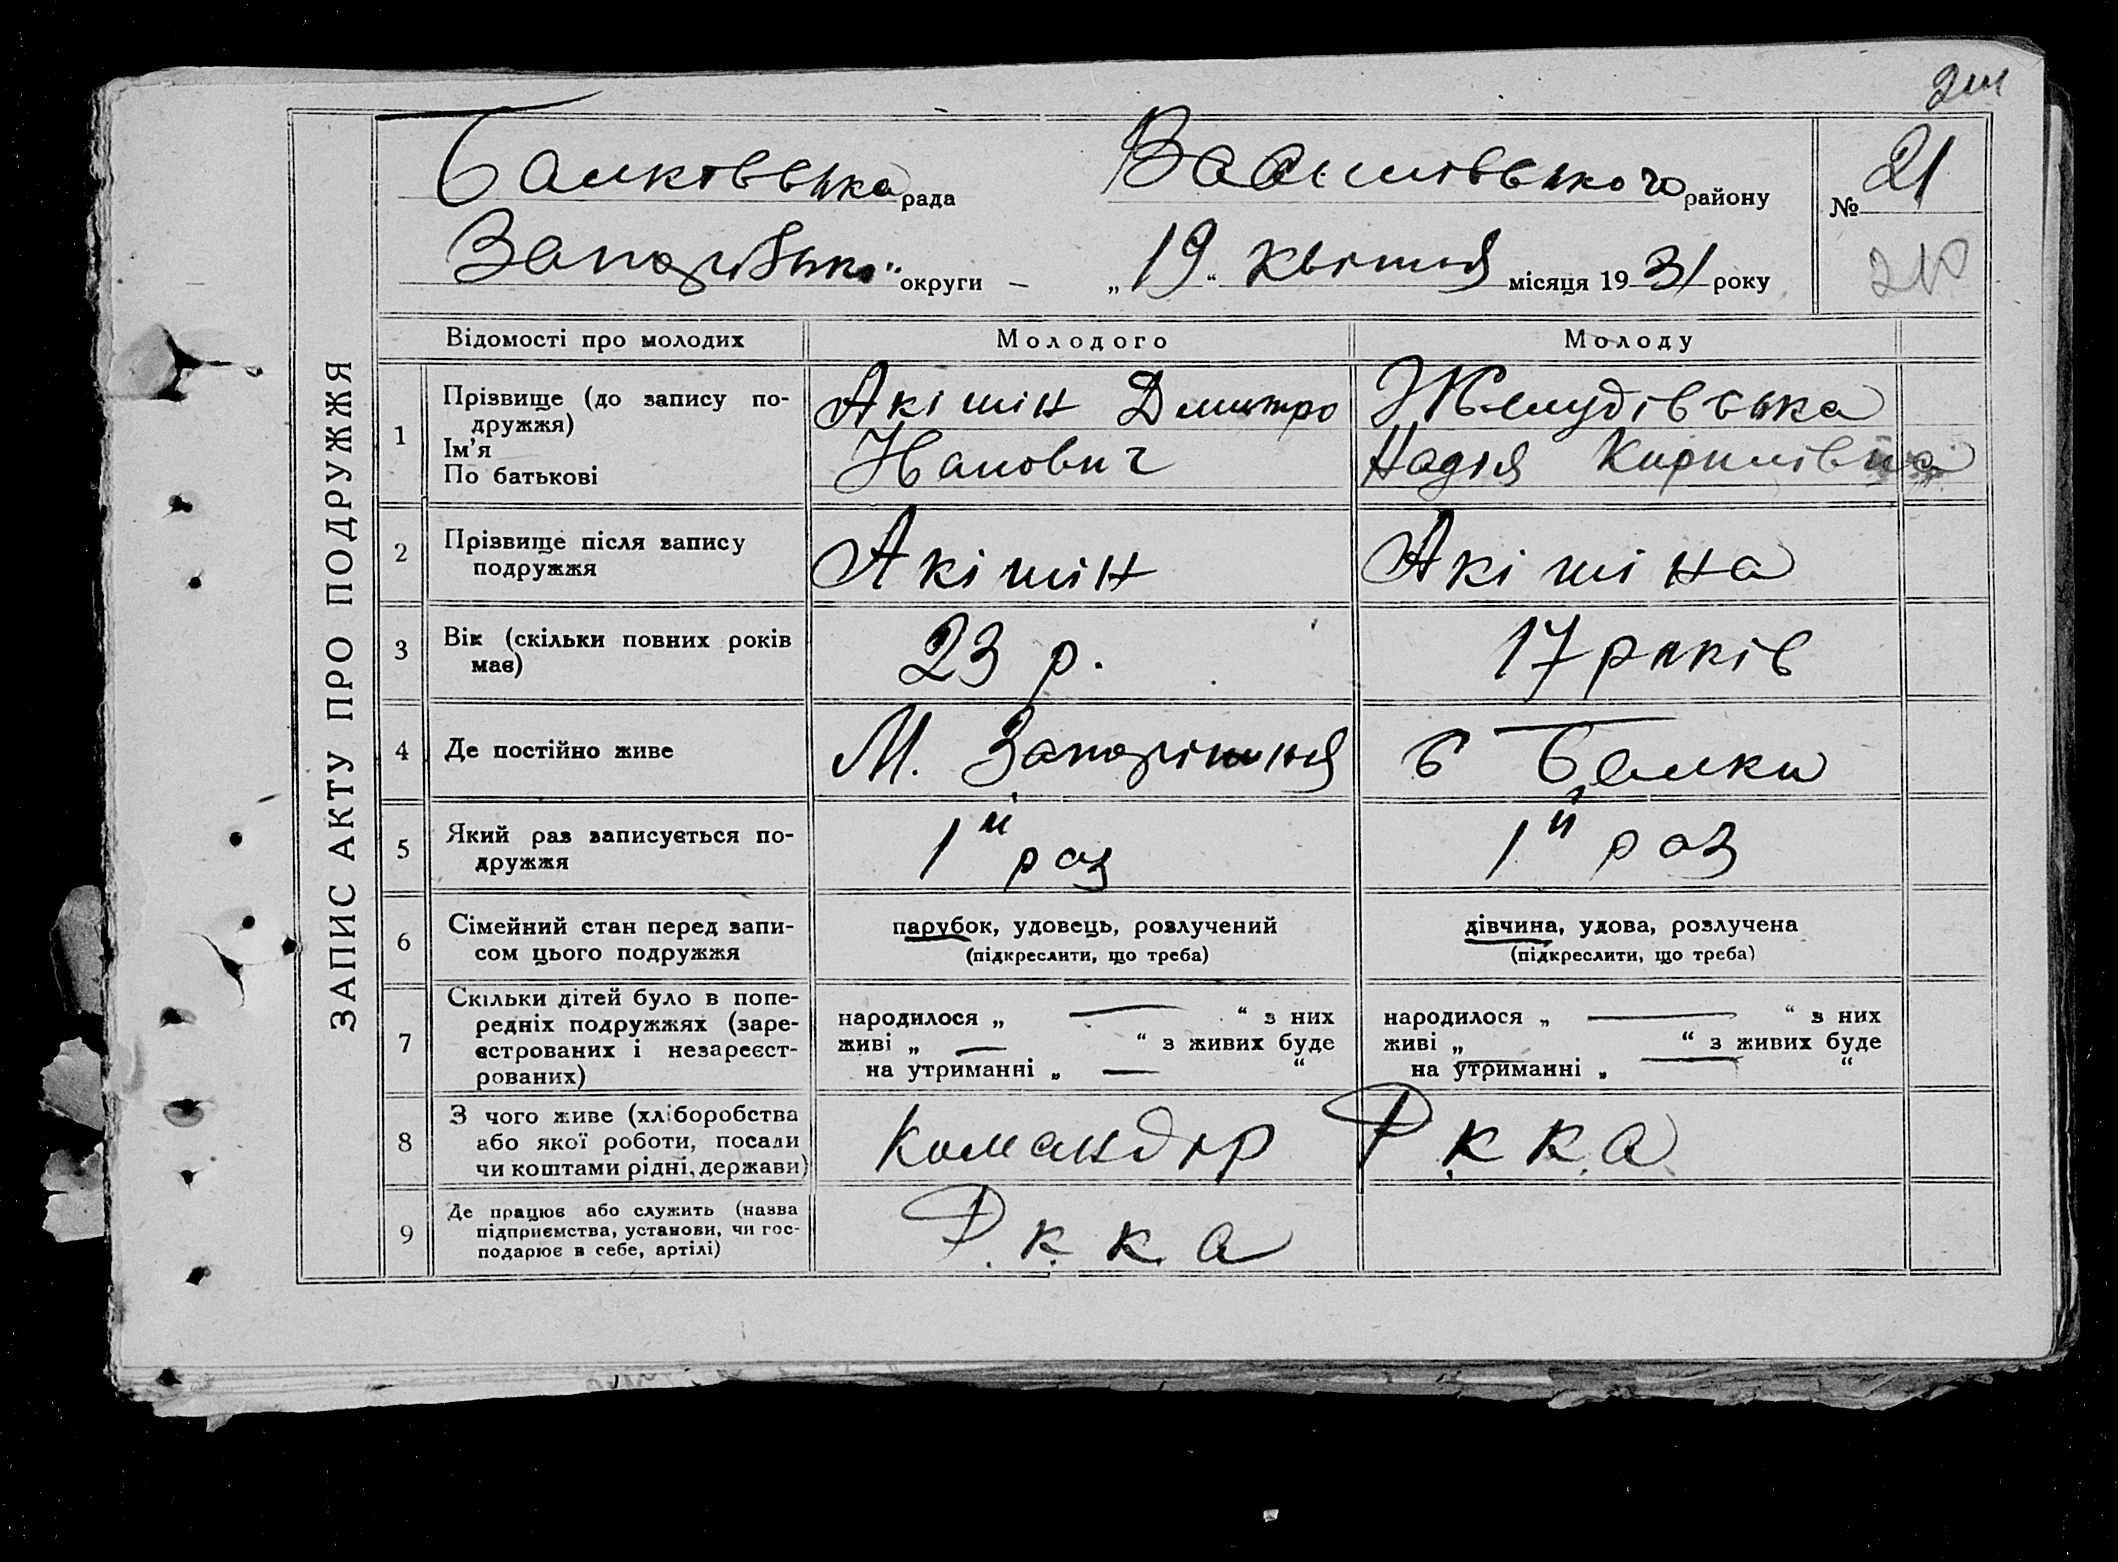 ЗАПИС АКТУ ПРО ПОДРУЖЖЯ
Балківська рада Василівського району № 21
Запорізької округи – „19“ квітня місяця 1931 року
Відомості про молодих Молодого Молоду
1 Прізвище (до запису по-
дружжя)
Ім’я
По батькові
Акішін Дмитро
Желудівська
Надія Кирилівна
2 Прізвище після запису
подружжя
Акішін Акішіна
3 Вік (скільки повних років
має)
23 р. 17 років
4 Де постійно живе М. Запоріжжя с Балки
5 Який раз записується по-
дружжя
1й раз 1й раз
6 Сімейний стан перед запи-
сом цього подружжя
парубок, удовець, розлучений
(підкреслити, що треба)
дівчина, удова, розлучена
(підкреслити, що треба)
7 Скільки дітей було в попе-
редніх подружжях (заре-
єстрованих і незареєст-
рованих)
народилося „ — “ з них
живі „ — “ з живих буде
на утриманні „ — “
народилося „ — “ з них
живі „ — “ з живих буде
на утриманні „ — “
8 З чого живе (хліборобства
або якої роботи, посади
чи коштами рідні, держави)
Командир Р.К.К.А
9 Де працює або служить (назва
підприємства, установи, чи гос-
подарює в себе, артілі)
Р.К.К.А